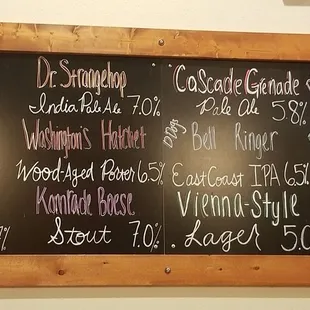 Dr. Strangehop
India Pale Ale 7.0%
Washington's Hatchet
Wood-Aged Porter 6.5%
Komrade Boese
Stout 7.0%
Cascade Grenade
Pale Ale 5.8%
DDogs Bell Ringer
East Coast IPA 6.5%
Vienna-Style
Lager 5.0
%